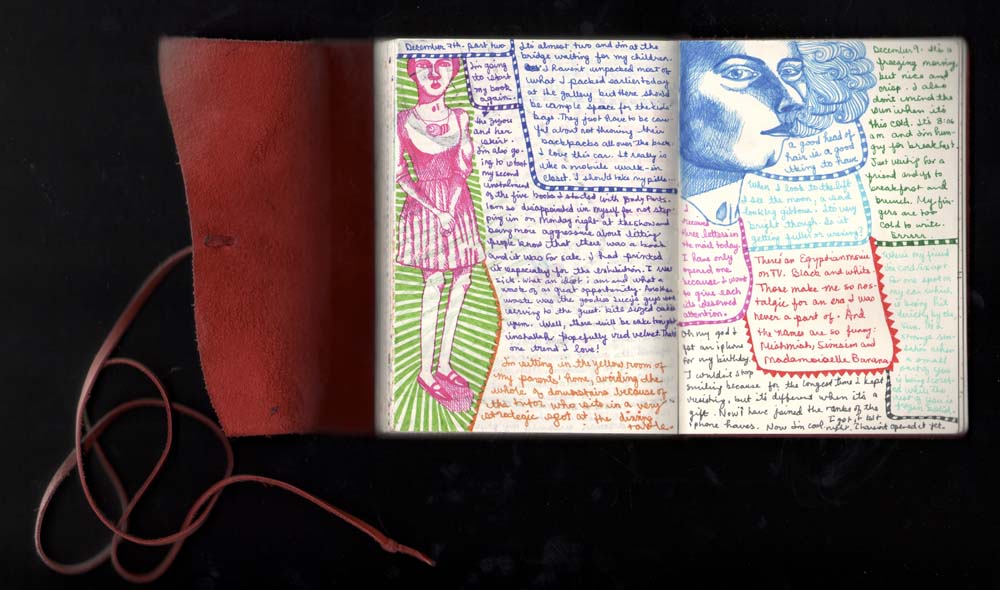 December 7th. part two
I'm going
to start
my book
again.
the zigou
and her
sister.
I'm also go-
ing to shoot
my second
instalment
of the five books I started with Body Parts.
I am so disappointed in myself for not step-
ping in on Monday night at the show and
being more aggressive about letting
people know that there was a book
and it was for sale. I had printed
it especially for the exhibition. I was
sick. what an idiot I am and what a
waste of a great opportunity. Another
waste was the goodies Lucy's guys were
serving to the guest. bite sized cakes
yum. Well, there will be cake tonight
inshallah. Hopefully red velvet. That's
one trend I love!
It's almost two and I'm at the
bridge waiting for my children.
I haven't unpacked most of
what I packed earlier today
at the gallery but there should
be ample space for the kids'
bags. They just have to be care-
ful about not throwing their
backpacks all over the back.
I love this car. It really is
like a mobile walk-in
closet. I should take my pills...
I'm sitting in the yellow room of
my parents' home, avoiding the
whole of downstairs because of
the tutor who sits in a very
strategic spot at the dining
table.
a good head of
hair is a good
thing to have
When I look to the left
I see the moon, a sad
looking gibbous. Its very
bright though. Is it
getting fuller or waning?
I
received
three letters in
the mail today.
I have only
opened one
because I want
to give each
its deserved
attention.
There's an Egyptian movie
on TV. Black and white
Those make me so nos-
talgic for an era I was
never a part of. And
the names are so funny:
Mishmish, Simsim and
Mademoiselle Banana
Oh my god I
got an iphone
for my birthday.
I wouldn't stop
smiling because for the longest time I kept
resisting, but it's different when it's a
gift. Now I have joined the ranks of the
iphone haves. Now I'm cool.
I got it last
night. I haven't opened it yet.
December 9. It's a
freezing morning,
but nice and
crisp. I also
don't mind the
sun when it's
this cold. It's 8:06
am and I'm hun-
gry for breakfast.
Just waiting for a
friend and its to
breakfast and
brunch. My fin-
gers are too
cold to write.
Brrrrr
where's my friend
I'm cold. Except
for one spot on
my ear which
is being hit
directly by the
sun. Its a
strange sen-
sation when
a small
part of you
is being scorch-
ed while the
rest of you is
frozen solid.